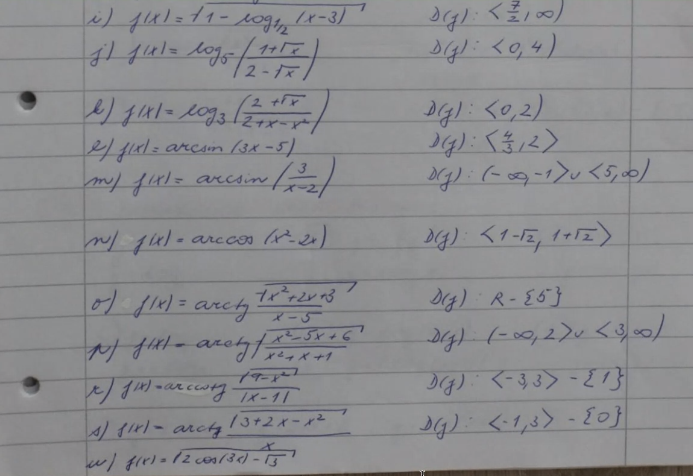 i) f(x) = √(1 - log_{1/2} (x-3)) D(f): <7/2, ∞)
j) f(x) = log_5 ((1+√x)/(2-√x)) D(f): <0, 4)
k) f(x) = log_3 ((2+√x)/(2+x-x²)) D(f): <0, 2)
l) f(x) = arcsin (3x-5) D(f): <4/3, 2>
m) f(x) = arcsin (3/(x-2)) D(f): (-∞, -1> ∪ <5, ∞)
n) f(x) = arccos (x²-2x) D(f): <1-√2, 1+√2>
o) f(x) = arctg √(x²+2x+3)/(x-5) D(f): R - {5}
p) f(x) = arctg √((x²-5x+6)/(x²+x+1)) D(f): (-∞, 2> ∪ <3, ∞)
r) f(x) = arccotg √(9-x²)/|x-1| D(f): <-3, 3> - {1}
s) f(x) = arctg √(3+2x-x²)/x D(f): <-1, 3> - {0}
u) f(x) = √(2cos(3x)-√3)